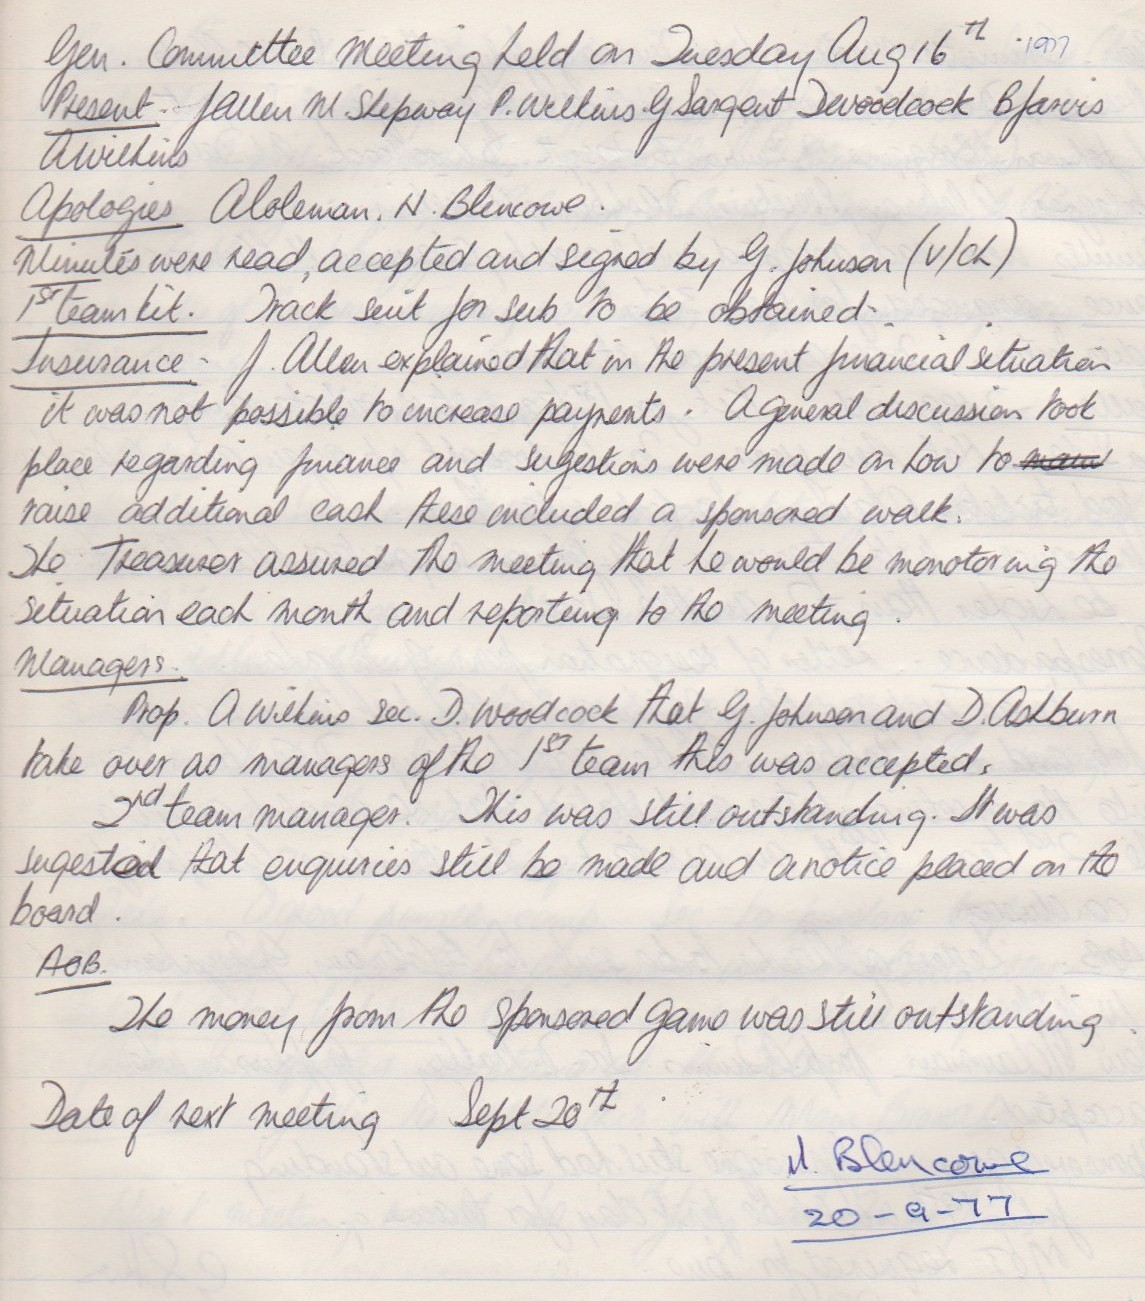 Gen. Committee Meeting held on Tuesday Aug 16th 1977
Present - J Allen M. Shepway P. Wilkins G Sargent D Woodcock B Jarvis
A Wilkins
Apologies A Coleman. N. Blencowe.
Minutes were read, accepted and signed by G. Johnson (V/Ch)
1st team kit. Track suit for sub to be obtained.
Insurance - J. Allen explained that in the present financial situation
it was not possible to increase payments. A general discussion took
place regarding finance and sugestions were made on how to
raise additional cash these included a sponsored walk.
The Treasurer assured the meeting that he would be monotoring the
situation each month and reporting to the meeting.
Managers.
Prop. A Wilkins Sec. D. Woodcock that G. Johnson and D. Ashburn
take over as managers of the 1st team this was accepted.
2nd team manager. This was still outstanding. It was
sugested that enquiries still be made and a notice placed on the
board.
AOB.
The money from the sponsored game was still outstanding
Date of next meeting Sept 20th.
N. Blencowe
20-9-77